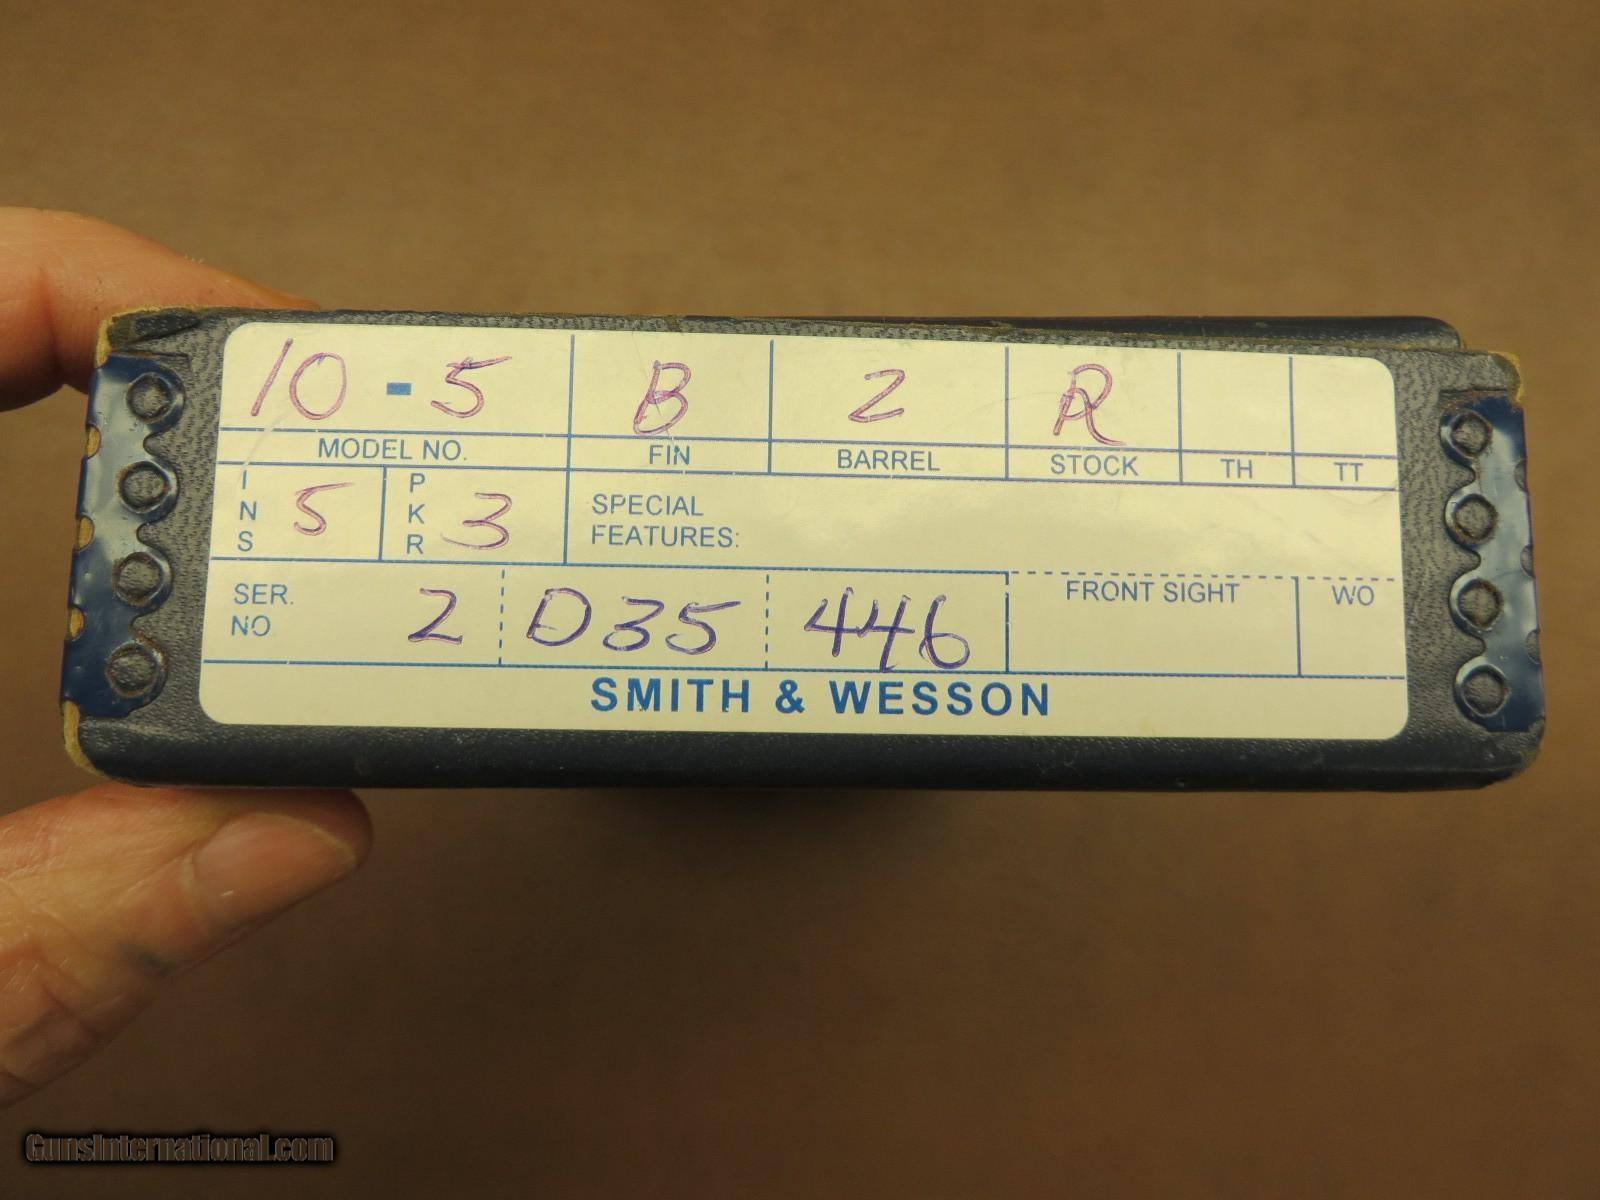 10 - 5 B 2 R
MODEL NO. FIN BARREL STOCK TH TT
INS 5 PKR 3 SPECIAL
FEATURES:
SER. NO 2 D35 446 FRONT SIGHT WO
SMITH & WESSON
GunsInternational.com